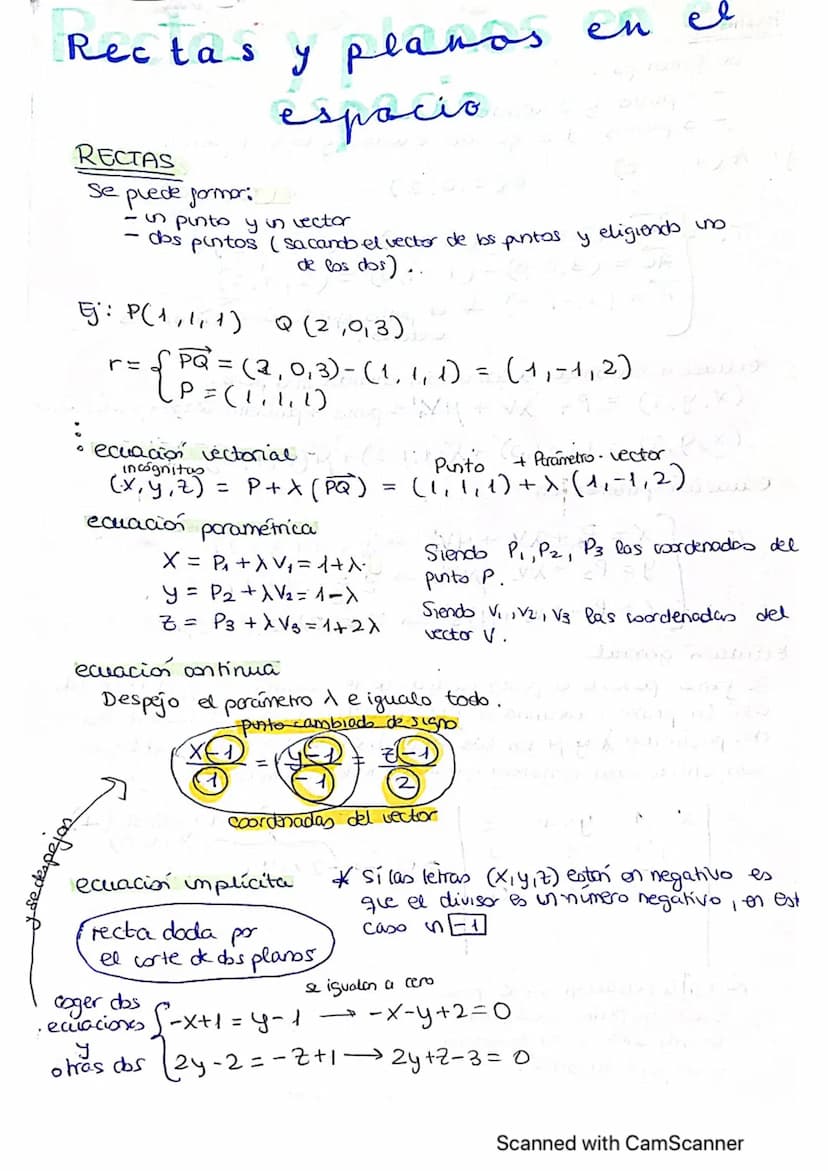 Rectas y planos en el
espacio
RECTAS
Se puede formar:
- un punto y un vector
- dos puntos (sacando el vector de los puntos y eligiendo uno
de los dos)..
Ej: P(1,1,1) Q(2,0,3)
r = { PQ = (2,0,3)-(1,1,1) = (1,-1,2)
P = (1,1,1)
ecuación vectorial
incógnitas Punto + Parámetro · vector
(x,y,z) = P+λ(PQ) = (1,1,1)+λ·(1,-1,2)
ecuación paramétrica
X = P1+λV1 = 1+λ
y = P2+λV2 = 1-λ
z = P3+λV3 = 1+2λ
Siendo P1,P2, P3 las coordenadas del
punto P.
Siendo V1,V2,V3 las coordenadas del
vector V.
ecuación continua
Despejo el parámetro λ e igualo todo.
punto cambiado de signo
x-1/1 = y-1/-1 = z-1/2
coordenadas del vector
y se despejan
ecuación implícita
* Si las letras (x,y,z) están en negativo es
que el divisor es un número negativo, en est
caso un -1
recta dada por
el corte de dos planos
se igualan a cero
coger dos
ecuaciones
y
otras dos
{ -x+1 = y-1 → -x-y+2=0
2y-2 = -z+1 → 2y+z-3 = 0
Scanned with CamScanner